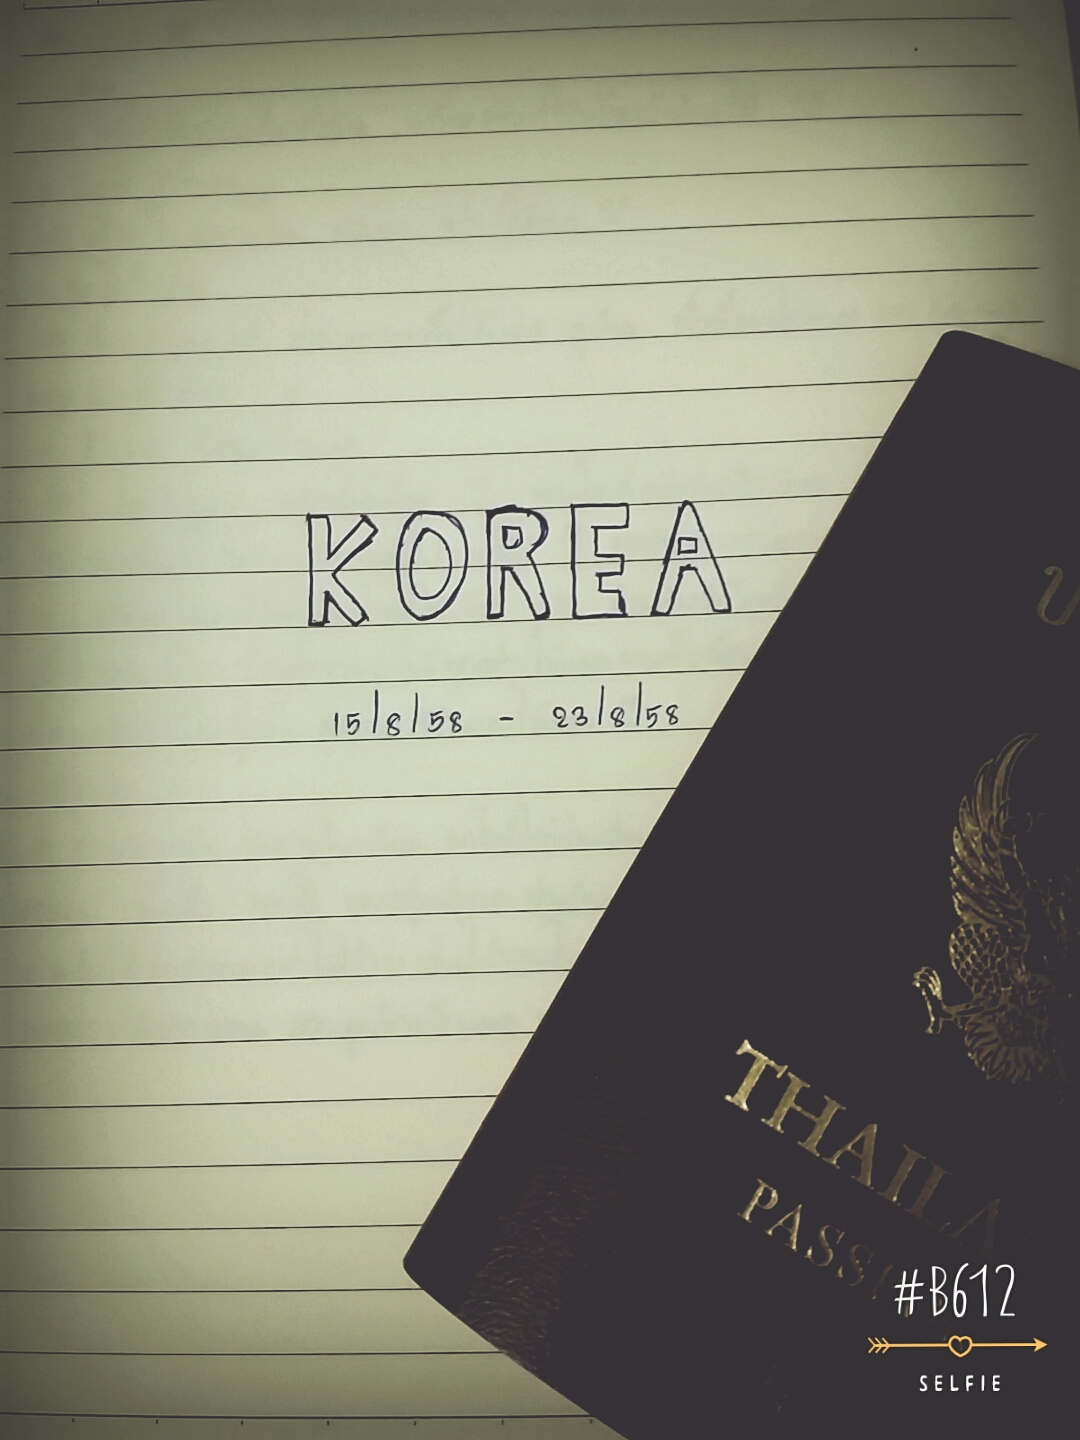 KOREA
15/8/58 - 23/8/58
THAILA
PASS
#B612
SELFIE